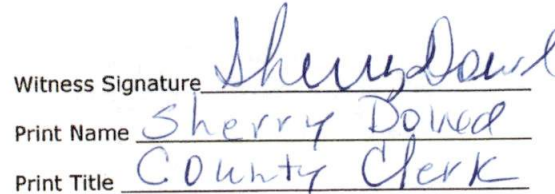 Witness Signature Sherry Dowd
Print Name Sherry Dowd
Print Title County Clerk